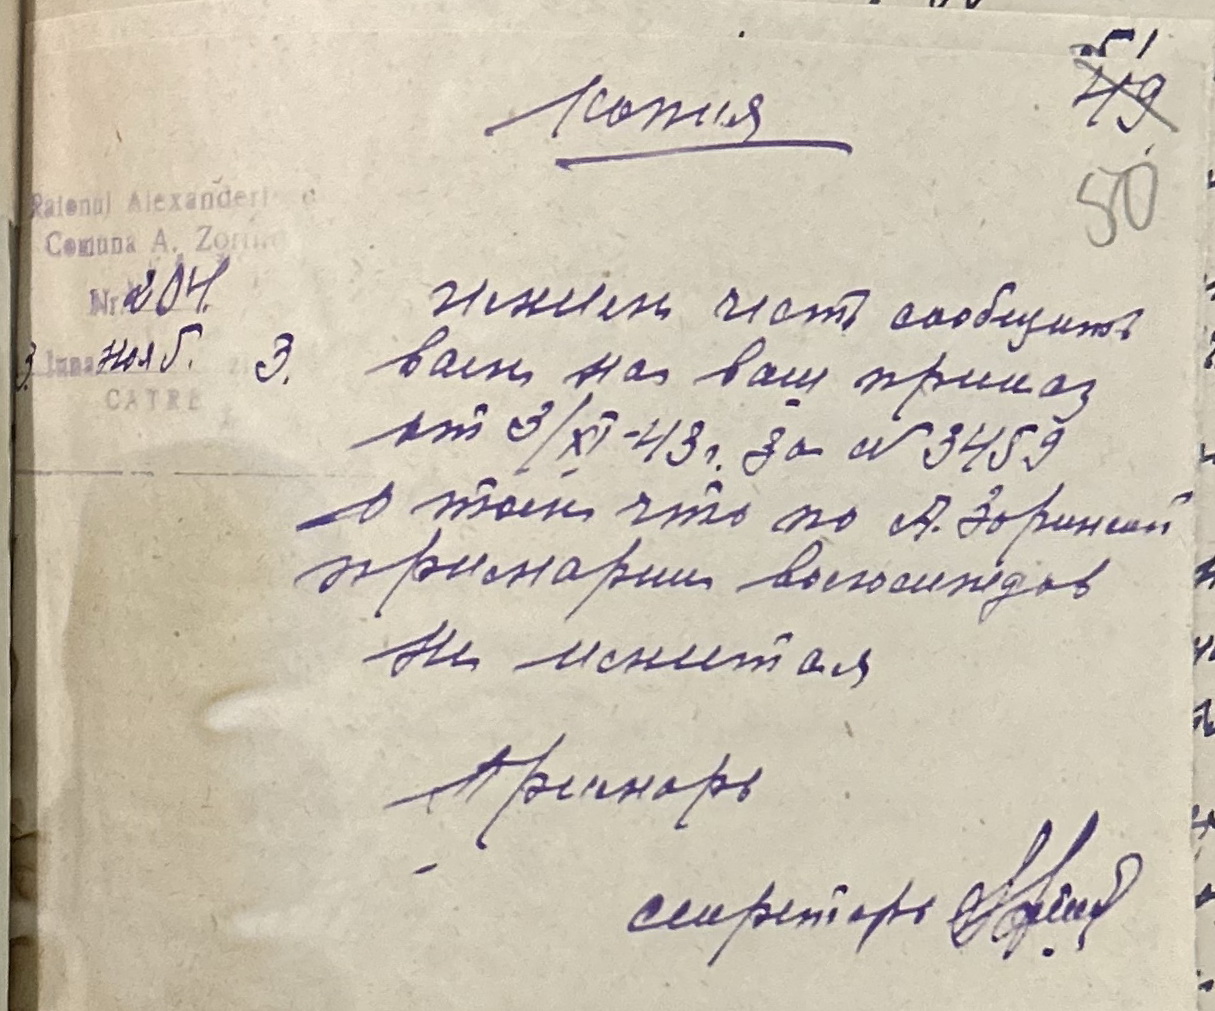 51
49
50
Копия
Raionul Alexander
Comuna A. Zorin
Nr 204.
3. luna нояб. 3.
CATRE
имеем честь сообщить
вам на ваш приказ
от 3/XI-43 г. за N 3459
о том что по А. Зоринской
примарии велосипедов
не имеится
Примарь
секретарь